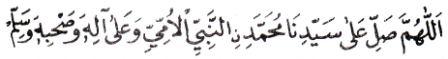 اَللّٰهُمَّ صَلِّ عَلٰى سَيِّدِنَا مُحَمَّدٍ نِ النَّبِيِّ الْاُمِّيِّ وَعَلٰى آلِهٖ وَصَحْبِهٖ وَسَلِّمْ